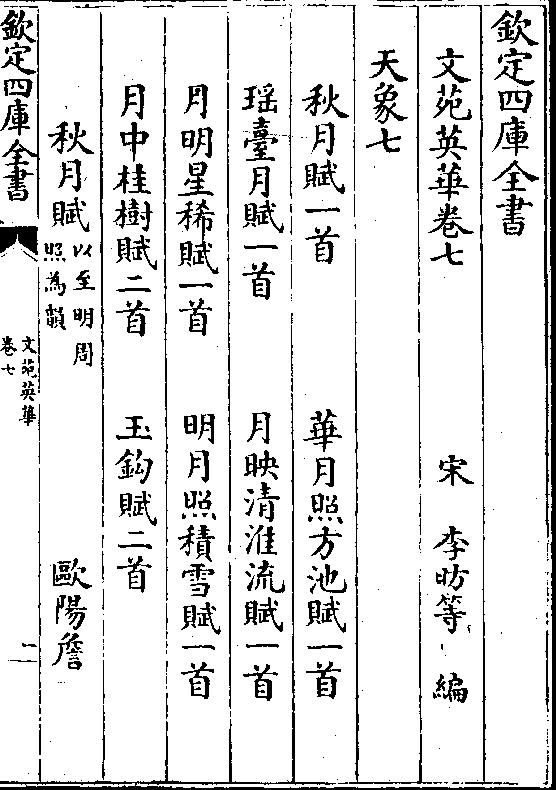 欽定四庫全書
文苑英華卷七　宋　李昉等　編
天象七
秋月賦一首　華月照方池賦一首
瑶臺月賦一首　月映清淮流賦一首
月明星稀賦一首　明月照積雪賦一首
月中桂樹賦二首　玉鈎賦二首
秋月賦以至明周照為韻　歐陽詹
欽定四庫全書
文苑英華
卷七
二